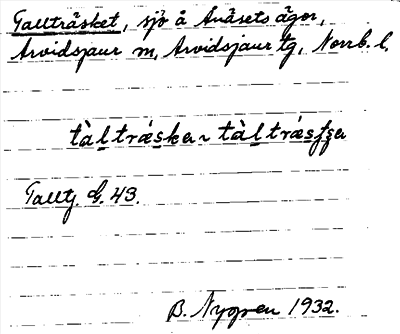 Tallträsket, sjö å Avasets ägor,
Arvidsjaur sn, Arvidsjaur tg, Norrb. l.
tàltráskɐ ~ tàltrásʂɐ
Talltj. G. 43.
B. Nygren 1932.